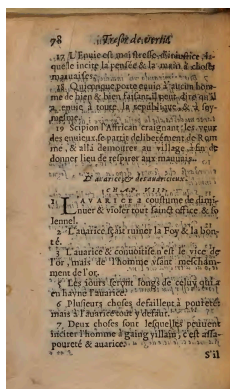 78 Tresor de vertu
17 L'Enuie est maistresse d'iniustice, la-
quelle incite la pensée & la main à choses
mauuaises.
18 Quiconque porte enuie à aucun hom-
me de bien & bien faisant, il peut dire qu'il
a enuie à toute la republique, & à soy-
mesme.
19 Scipion l'Africain craignant les yeux
des enuieux se partit deliberément de Rom
me, & alla demourer au village, afin de
donner lieu de respirer aux mauuais.
D'auarice, & des auaricieux.
CHAP. VIII.
1 L'AVARICE a coustume de dimi-
nuer & violer tout sainct office & so
lennel.
2 L'auarice sçait ruiner la Foy & la bon-
té.
3 L'auarice & conuoitise n'est le vice de
l'or, mais de l'homme vsant mescham-
ment de l'or.
5 Les iours seront longs de celuy qui a
en hayne l'auarice.
6 Plusieurs choses defaillent à poureté
mais à l'auarice tout y defaut.
7 Deux choses sont lesquelles peuuent
inciter l'homme à gaing villain, c'est assa-
poureté & auarice.
S'il